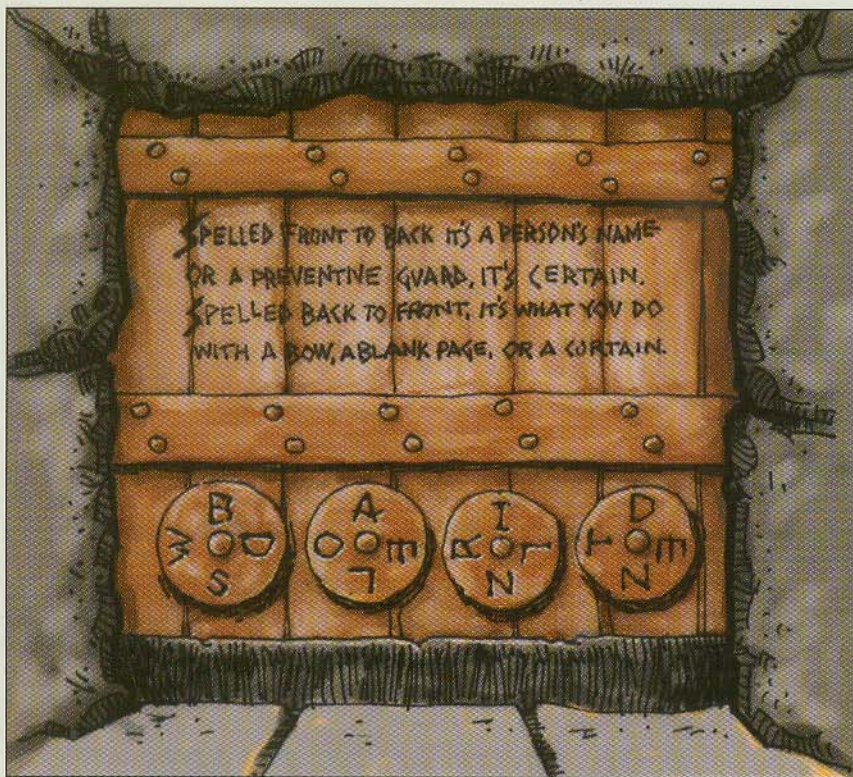 SPELLED FRONT TO BACK IT'S A PERSON'S NAME
OR A PREVENTIVE GUARD, IT'S CERTAIN.
SPELLED BACK TO FRONT, IT'S WHAT YOU DO
WITH A BOW, A BLANK PAGE, OR A CURTAIN.
B D S W
A E L O
I L N R
D E N T